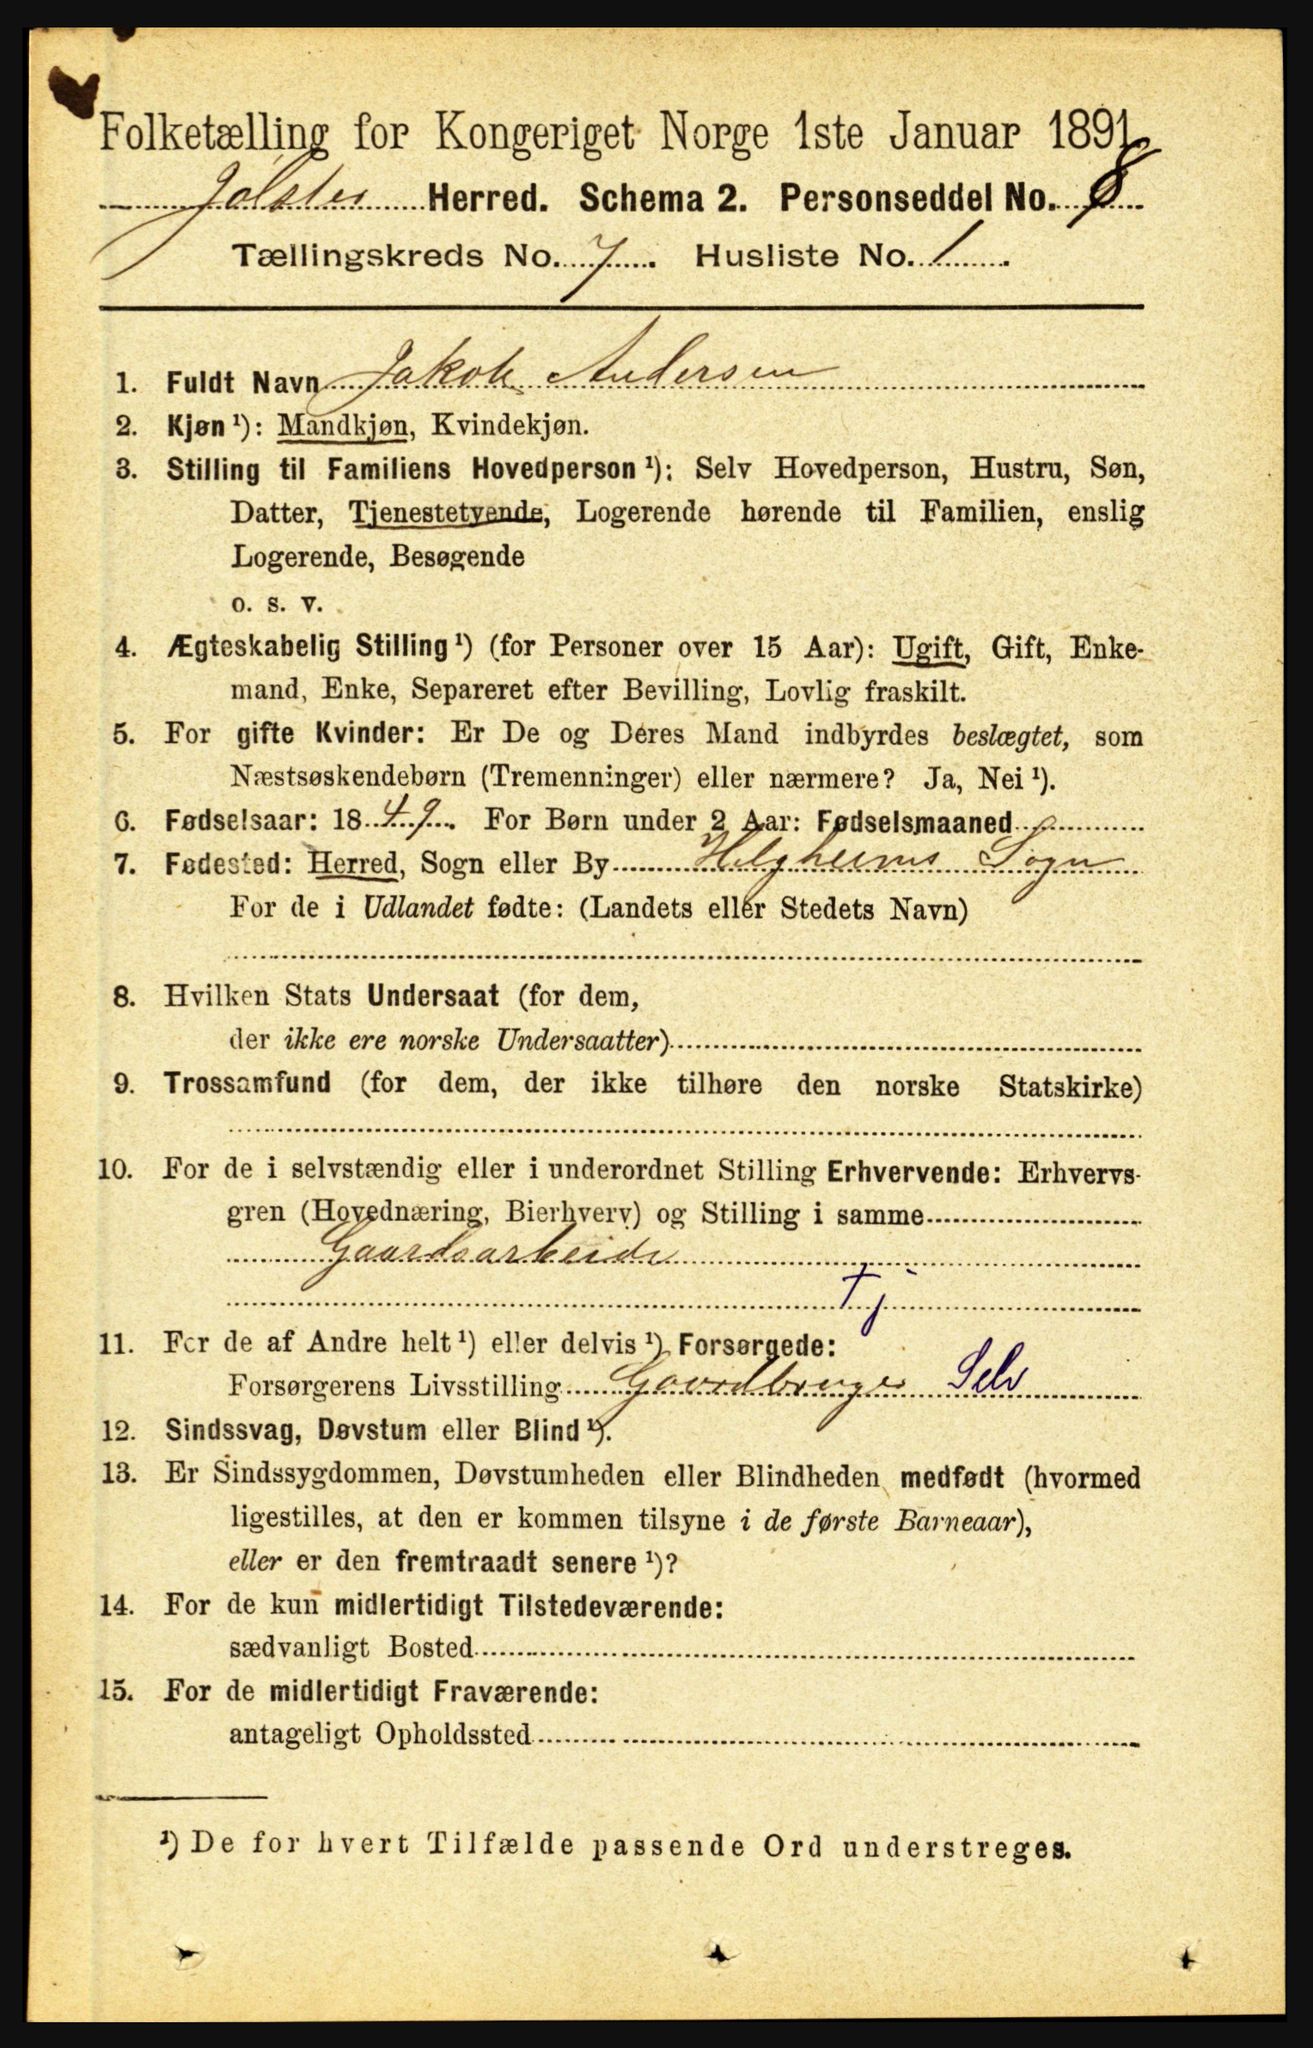 Folketælling for Kongeriget Norge 1ste Januar 1891.
Jølster Herred. Schema 2. Personseddel No. 8
Tællingskreds No. 7. Husliste No. 1.
1. Fuldt Navn Jakob Andersen
2. Kjøn ¹): Mandkjøn, Kvindekjøn.
3. Stilling til Familiens Hovedperson ¹): Selv Hovedperson, Hustru, Søn,
Datter, Tjenestetyende, Logerende hørende til Familien, enslig
Logerende, Besøgende
o. s. v.
4. Ægteskabelig Stilling ¹) (for Personer over 15 Aar): Ugift, Gift, Enke-
mand, Enke, Separeret efter Bevilling, Lovlig fraskilt.
5. For gifte Kvinder: Er De og Deres Mand indbyrdes beslægtet, som
Næstsøskendebørn (Tremenninger) eller nærmere? Ja, Nei ¹).
6. Fødselsaar: 1849. For Børn under 2 Aar: Fødselsmaaned
7. Fødested: Herred, Sogn eller By Helgheims Sogn
For de i Udlandet fødte: (Landets eller Stedets Navn)
8. Hvilken Stats Undersaat (for dem,
der ikke ere norske Undersaatter)
9. Trossamfund (for dem, der ikke tilhøre den norske Statskirke)
10. For de i selvstændig eller i underordnet Stilling Erhvervende: Erhvervs-
gren (Hovednæring, Bierhverv) og Stilling i samme
Gaardsarbeide
Tj
11. For de af Andre helt ¹) eller delvis ¹) Forsørgede:
Forsørgerens Livsstilling Gaardbruger Selv
12. Sindssvag, Døvstum eller Blind ¹).
13. Er Sindssygdommen, Døvstumheden eller Blindheden medfødt (hvormed
ligestilles, at den er kommen tilsyne i de første Barneaar),
eller er den fremtraadt senere ¹)?
14. For de kun midlertidigt Tilstedeværende:
sædvanligt Bosted
15. For de midlertidigt Fraværende:
antageligt Opholdssted
¹) De for hvert Tilfælde passende Ord understreges.